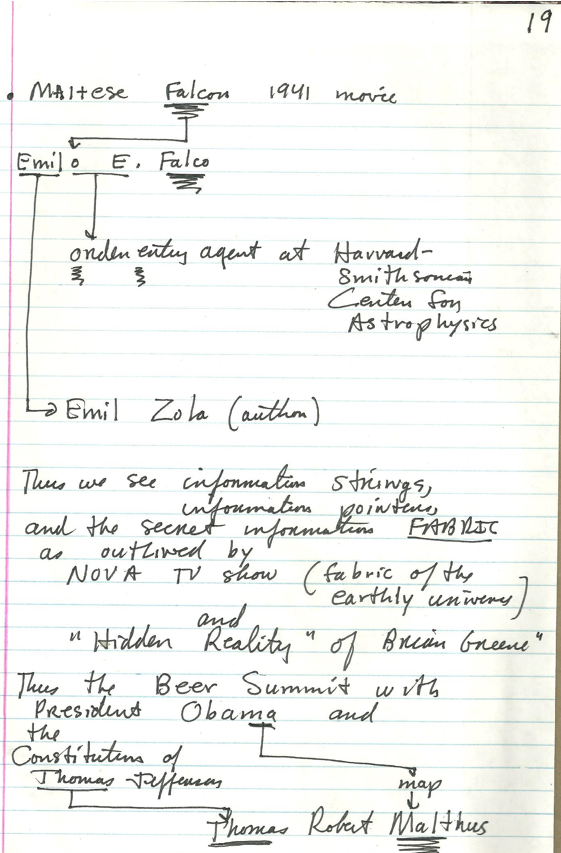 19
• Maltese Falcon 1941 movie
Emilo E. Falco
order entry agent at Harvard-
Smithsonian
Center for
Astrophysics
Emil Zola (author)
Thus we see information strings,
information pointers,
and the secret information FABRIC
as outlined by
NOVA TV show (fabric of the
earthly univers)
and
"Hidden Reality" of Brian Greene"
Thus the Beer Summit with
President Obama and
the
Constitution of
Thomas Jefferson
map
Thomas Robert Malthus